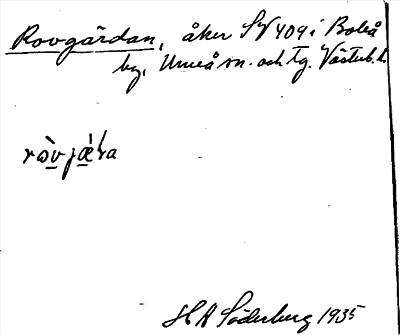 Rovgärdan, åker SV 409 i Boleå
by, Umeå sn. och tg. Västerb. l.
H A Söderberg 1935